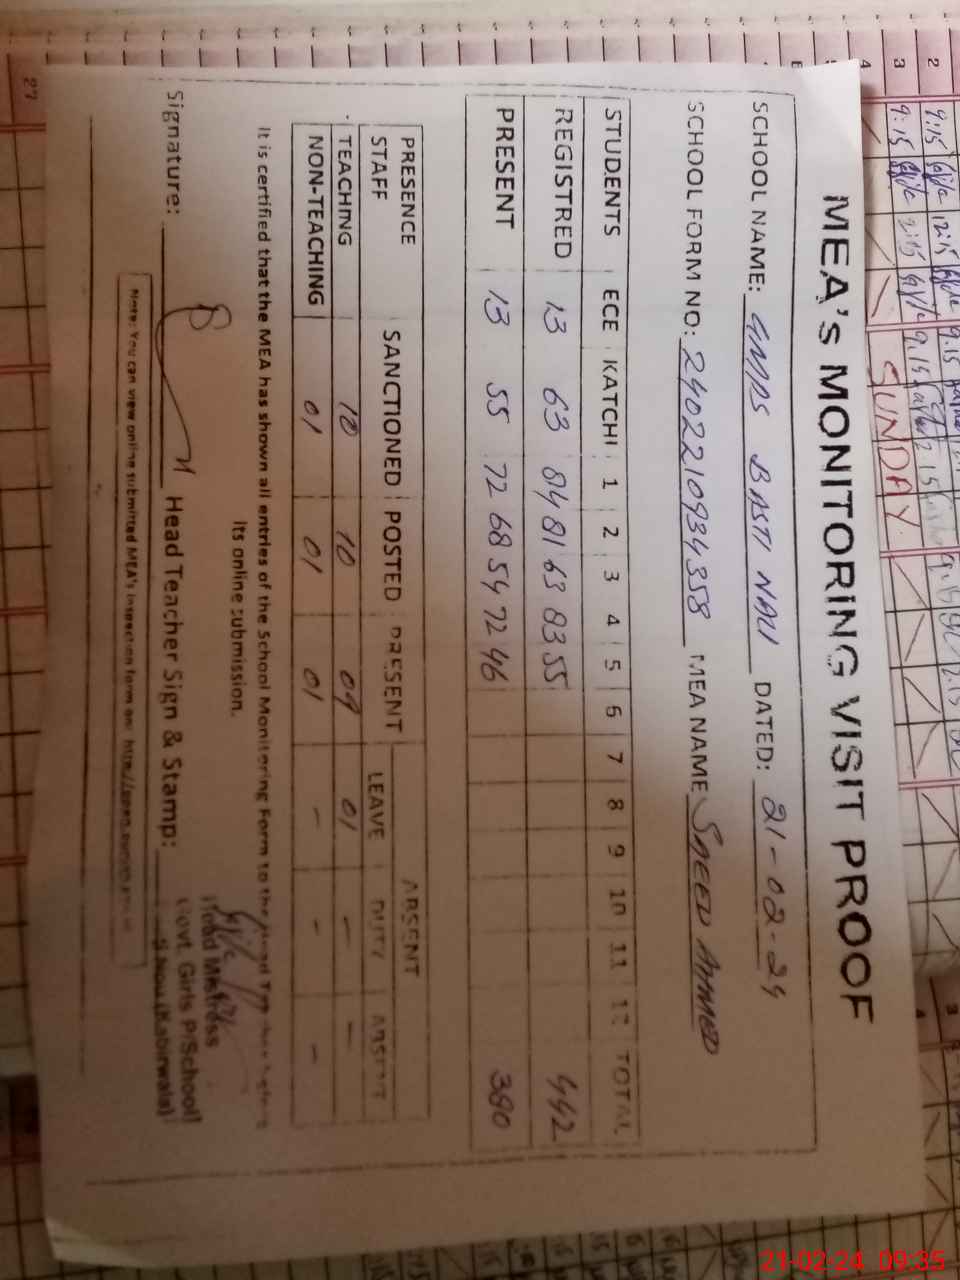 MEA's MONITORING VISIT PROOF
SCHOOL NAME: GMPS BASTI NAU DATED: 21-02-24
SCHOOL FORM NO: 2402210934358 MEA NAME SAEED AHMED
STUDENTS ECE KATCHI 1 2 3 4 5 6 7 8 9 10 11 12 TOTAL
REGISTRED 13 63 84 81 63 83 55 442
PRESENT 13 55 72 68 54 72 46 380
PRESENCE ABSENT
STAFF SANCTIONED POSTED PRESENT LEAVE DUTY ABSENT
TEACHING 10 10 09 01 - -
NON-TEACHING 01 01 01 - - -
It is certified that the MEA has shown all entries of the School Monitering Form to the
Its online submission.
Signature: Head Teacher Sign & Stamp:
Head Mistress
Govt. Girls P/School
Nau (Kabirwala)
Note: You can view online submitted MEA's inspection form on:
SUNDAY
2
3
4
9:15
9:15
12:15
27
21-02-24 09:35